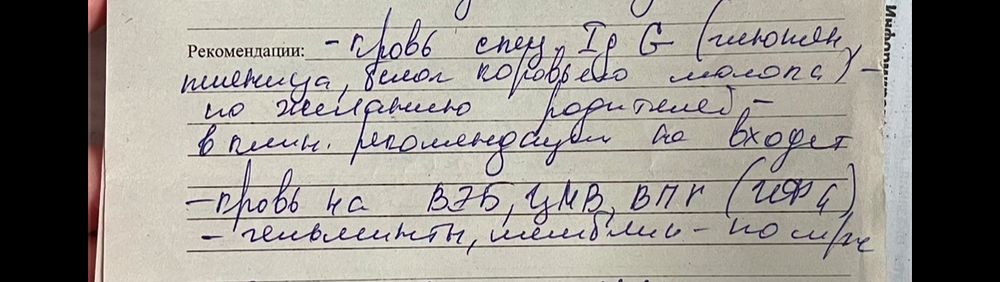 Рекомендации: - кровь спец. Ig G (глютен
пшеница, белок коровьего молока) -
по желанию родителей -
в клин. рекомендации не входит
- кровь на ВЭБ, ЦМВ, ВПГ (ИФА)
- гельминты, лямблии - по м/ж